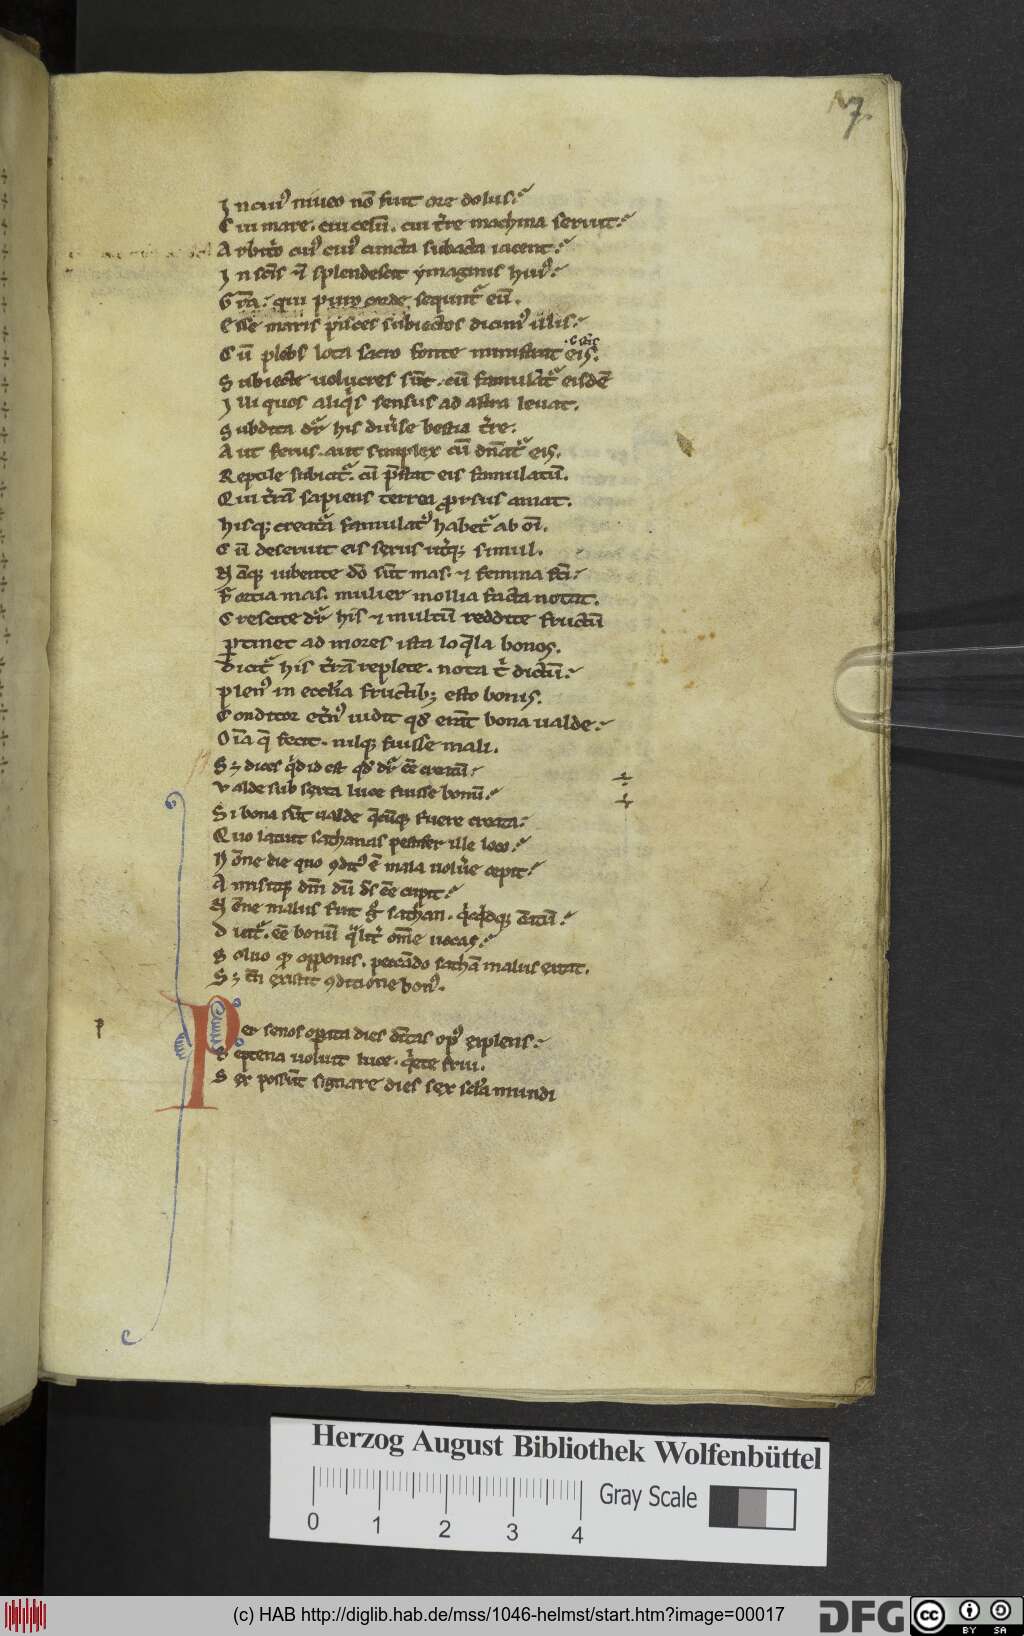 7
In cuiꝰ niueo nō fuit ore dolus.
Cui mare. cui celū. cui tr̄re machina seruit.
Arbit̄o cuiꝰ cuiꝰ cuncta subacta iacent.
In scīs splendescit ymaginis huiꝰ.
Gr̄a. qui puro corde sequunt̄ eū.
Esse maris pisces subiectos dicimꝰ illis.
Cū plebs lota sacro fonte ministrat eis.
Subiecte uolucres sūt. cū famulāt̄ eisdē
Illi quos aliqͥs sensus ad astra leuat.
Subdita dr̄ his diuͥse bestia tr̄re.
Aut ferus. aut simplex cū dn̄at̄ eis.
Reptile subicit̄. cū p̄stat eis famulatū.
Qui tr̄rā sapiens terrea prorsus amat.
Hisqꝫ creat̄a famulat̄ habet̄ ab oī.
Cū deseruit eis serus utͥqꝫ simul.
Nāqꝫ iubente dō sūt mas. ⁊ femina fc̄i.
Fortia mas. mulier mollia facta notat.
Crescite dr̄ his ⁊ multū reddite fructū
Ꝑtinet ad mores ista loqͣla bonos.
Dicit̄ his tr̄rā replete. nota t̄ dictū.
Plenꝰ in ecclīa fructibꝫ esto bonis.
Conditor et̄nꝰ uidit qd erāt bona ualde.
Oīa q̄ fecit. nilqꝫ fuisse mali.
Sꝫ dices qͥd id est qd dr̄ ēe creatū.
Valde sub sexta luce fuisse bonū.
Si bona sūt ualde q̄cūqꝫ fuere creata.
Quo latuit sathanas pestifer ille loco.
Nōne die quo ꝯditꝰ ē mala uolūe cepit.
Amisitqꝫ dm̄ dū dc̄s ēe cupit.
Nōne malus fuit gͦ sathan. qͥcqͥdqꝫ creatū.
Dicit̄. ēe bonū qͣlit̄ om̄e uocas.
Soluo qͦ opponis. peccādo sathā malus extat.
Sꝫ tn̄ existit ꝯditione bonꝰ.
p
Per senos operita dies dītatis opꝰ explens.
Septena uoluit luce. qͥete frui.
Sex possūt signare dies sex scl̄a mundi
Herzog August Bibliothek Wolfenbüttel
Gray Scale
0 1 2 3 4
(c) HAB http://diglib.hab.de/mss/1046-helmst/start.htm?image=00017
DFG
cc BY SA